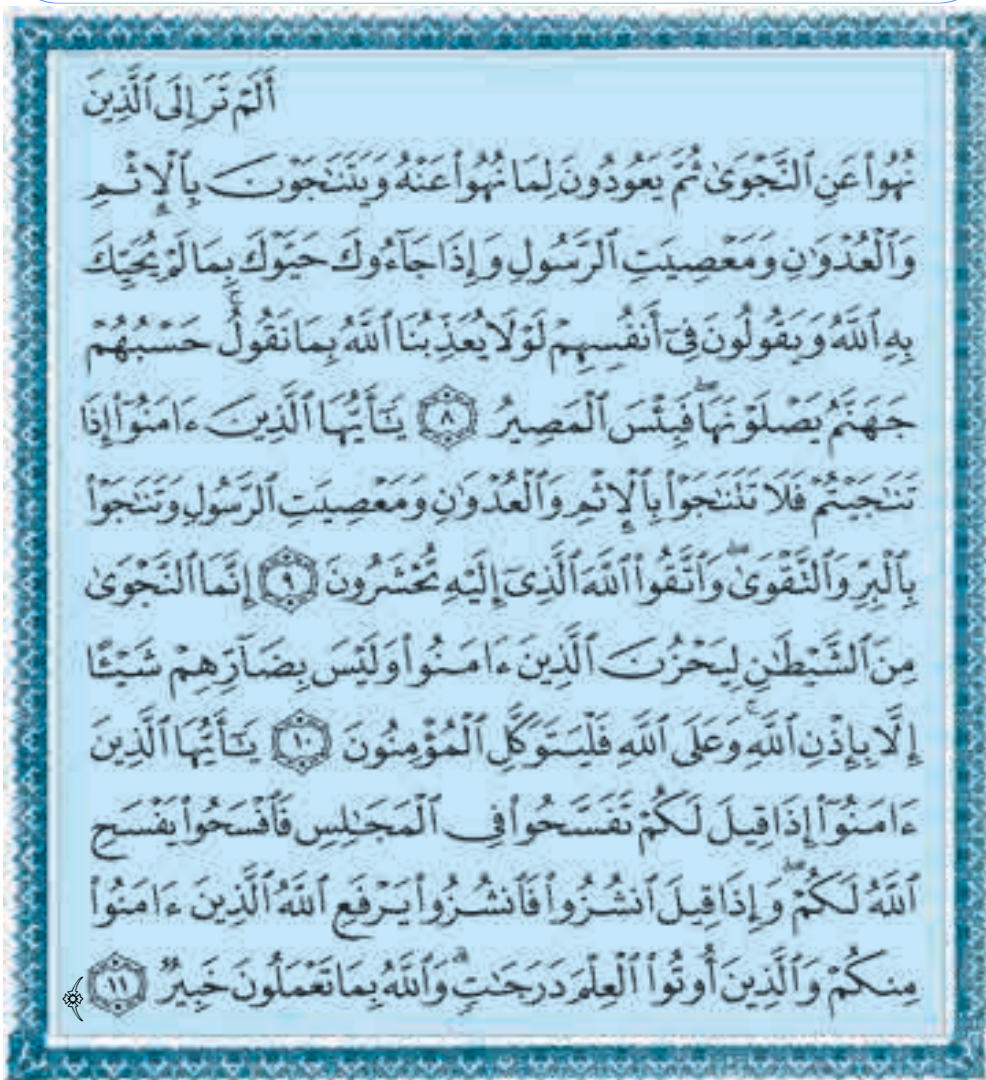 أَلَمْ تَرَ إِلَى ٱلَّذِينَ
نُهُوا۟ عَنِ ٱلنَّجْوَىٰ ثُمَّ يَعُودُونَ لِمَا نُهُوا۟ عَنْهُ وَيَتَنَـٰجَوْنَ بِٱلْإِثْمِ
وَٱلْعُدْوَٰنِ وَمَعْصِيَتِ ٱلرَّسُولِ وَإِذَا جَآءُوكَ حَيَّوْكَ بِمَا لَمْ يُحَيِّكَ
بِهِ ٱللَّهُ وَيَقُولُونَ فِىٓ أَنفُسِهِمْ لَوْلَا يُعَذِّبُنَا ٱللَّهُ بِمَا نَقُولُ ۚ حَسْبُهُمْ
جَهَنَّمُ يَصْلَوْنَهَا ۖ فَبِئْسَ ٱلْمَصِيرُ ﴿٨﴾ يَـٰٓأَيُّهَا ٱلَّذِينَ ءَامَنُوٓا۟ إِذَا
تَنَـٰجَيْتُمْ فَلَا تَتَنَـٰجَوْا۟ بِٱلْإِثْمِ وَٱلْعُدْوَٰنِ وَمَعْصِيَتِ ٱلرَّسُولِ وَتَنَـٰجَوْا۟
بِٱلْبِرِّ وَٱلتَّقْوَىٰ ۖ وَٱتَّقُوا۟ ٱللَّهَ ٱلَّذِىٓ إِلَيْهِ تُحْشَرُونَ ﴿٩﴾ إِنَّمَا ٱلنَّجْوَىٰ
مِنَ ٱلشَّيْطَـٰنِ لِيَحْزُنَ ٱلَّذِينَ ءَامَنُوا۟ وَلَيْسَ بِضَآرِّهِمْ شَيْـًٔا
إِلَّا بِإِذْنِ ٱللَّهِ ۚ وَعَلَى ٱللَّهِ فَلْيَتَوَكَّلِ ٱلْمُؤْمِنُونَ ﴿١٠﴾ يَـٰٓأَيُّهَا ٱلَّذِينَ
ءَامَنُوٓا۟ إِذَا قِيلَ لَكُمْ تَفَسَّحُوا۟ فِى ٱلْمَجَـٰلِسِ فَٱفْسَحُوا۟ يَفْسَحِ
ٱللَّهُ لَكُمْ ۖ وَإِذَا قِيلَ ٱنشُزُوا۟ فَٱنشُزُوا۟ يَرْفَعِ ٱللَّهُ ٱلَّذِينَ ءَامَنُوا۟
مِنكُمْ وَٱلَّذِينَ أُوتُوا۟ ٱلْعِلْمَ دَرَجَـٰتٍ ۚ وَٱللَّهُ بِمَا تَعْمَلُونَ خَبِيرٌ ﴿١١﴾ ﴾